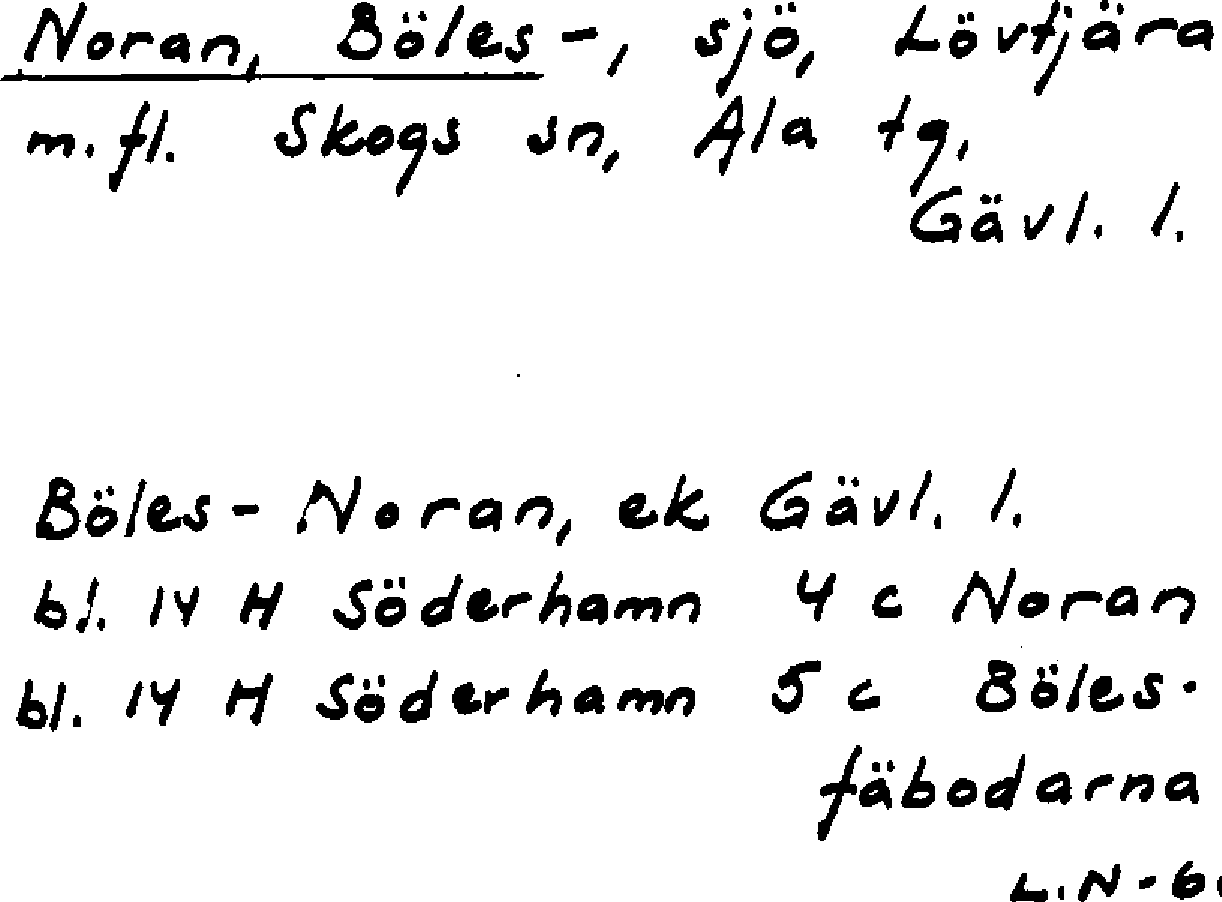 Noran, Böles-, sjö, Lövtjära
m.fl. Skogs sn, Ala tg,
Gävl. l.
Böles-Noran, ek Gävl. l.
bl. 14 H Söderhamn 4 c Noran
bl. 14 H Söderhamn 5 c Böles-
fäbodarna
L.N-6